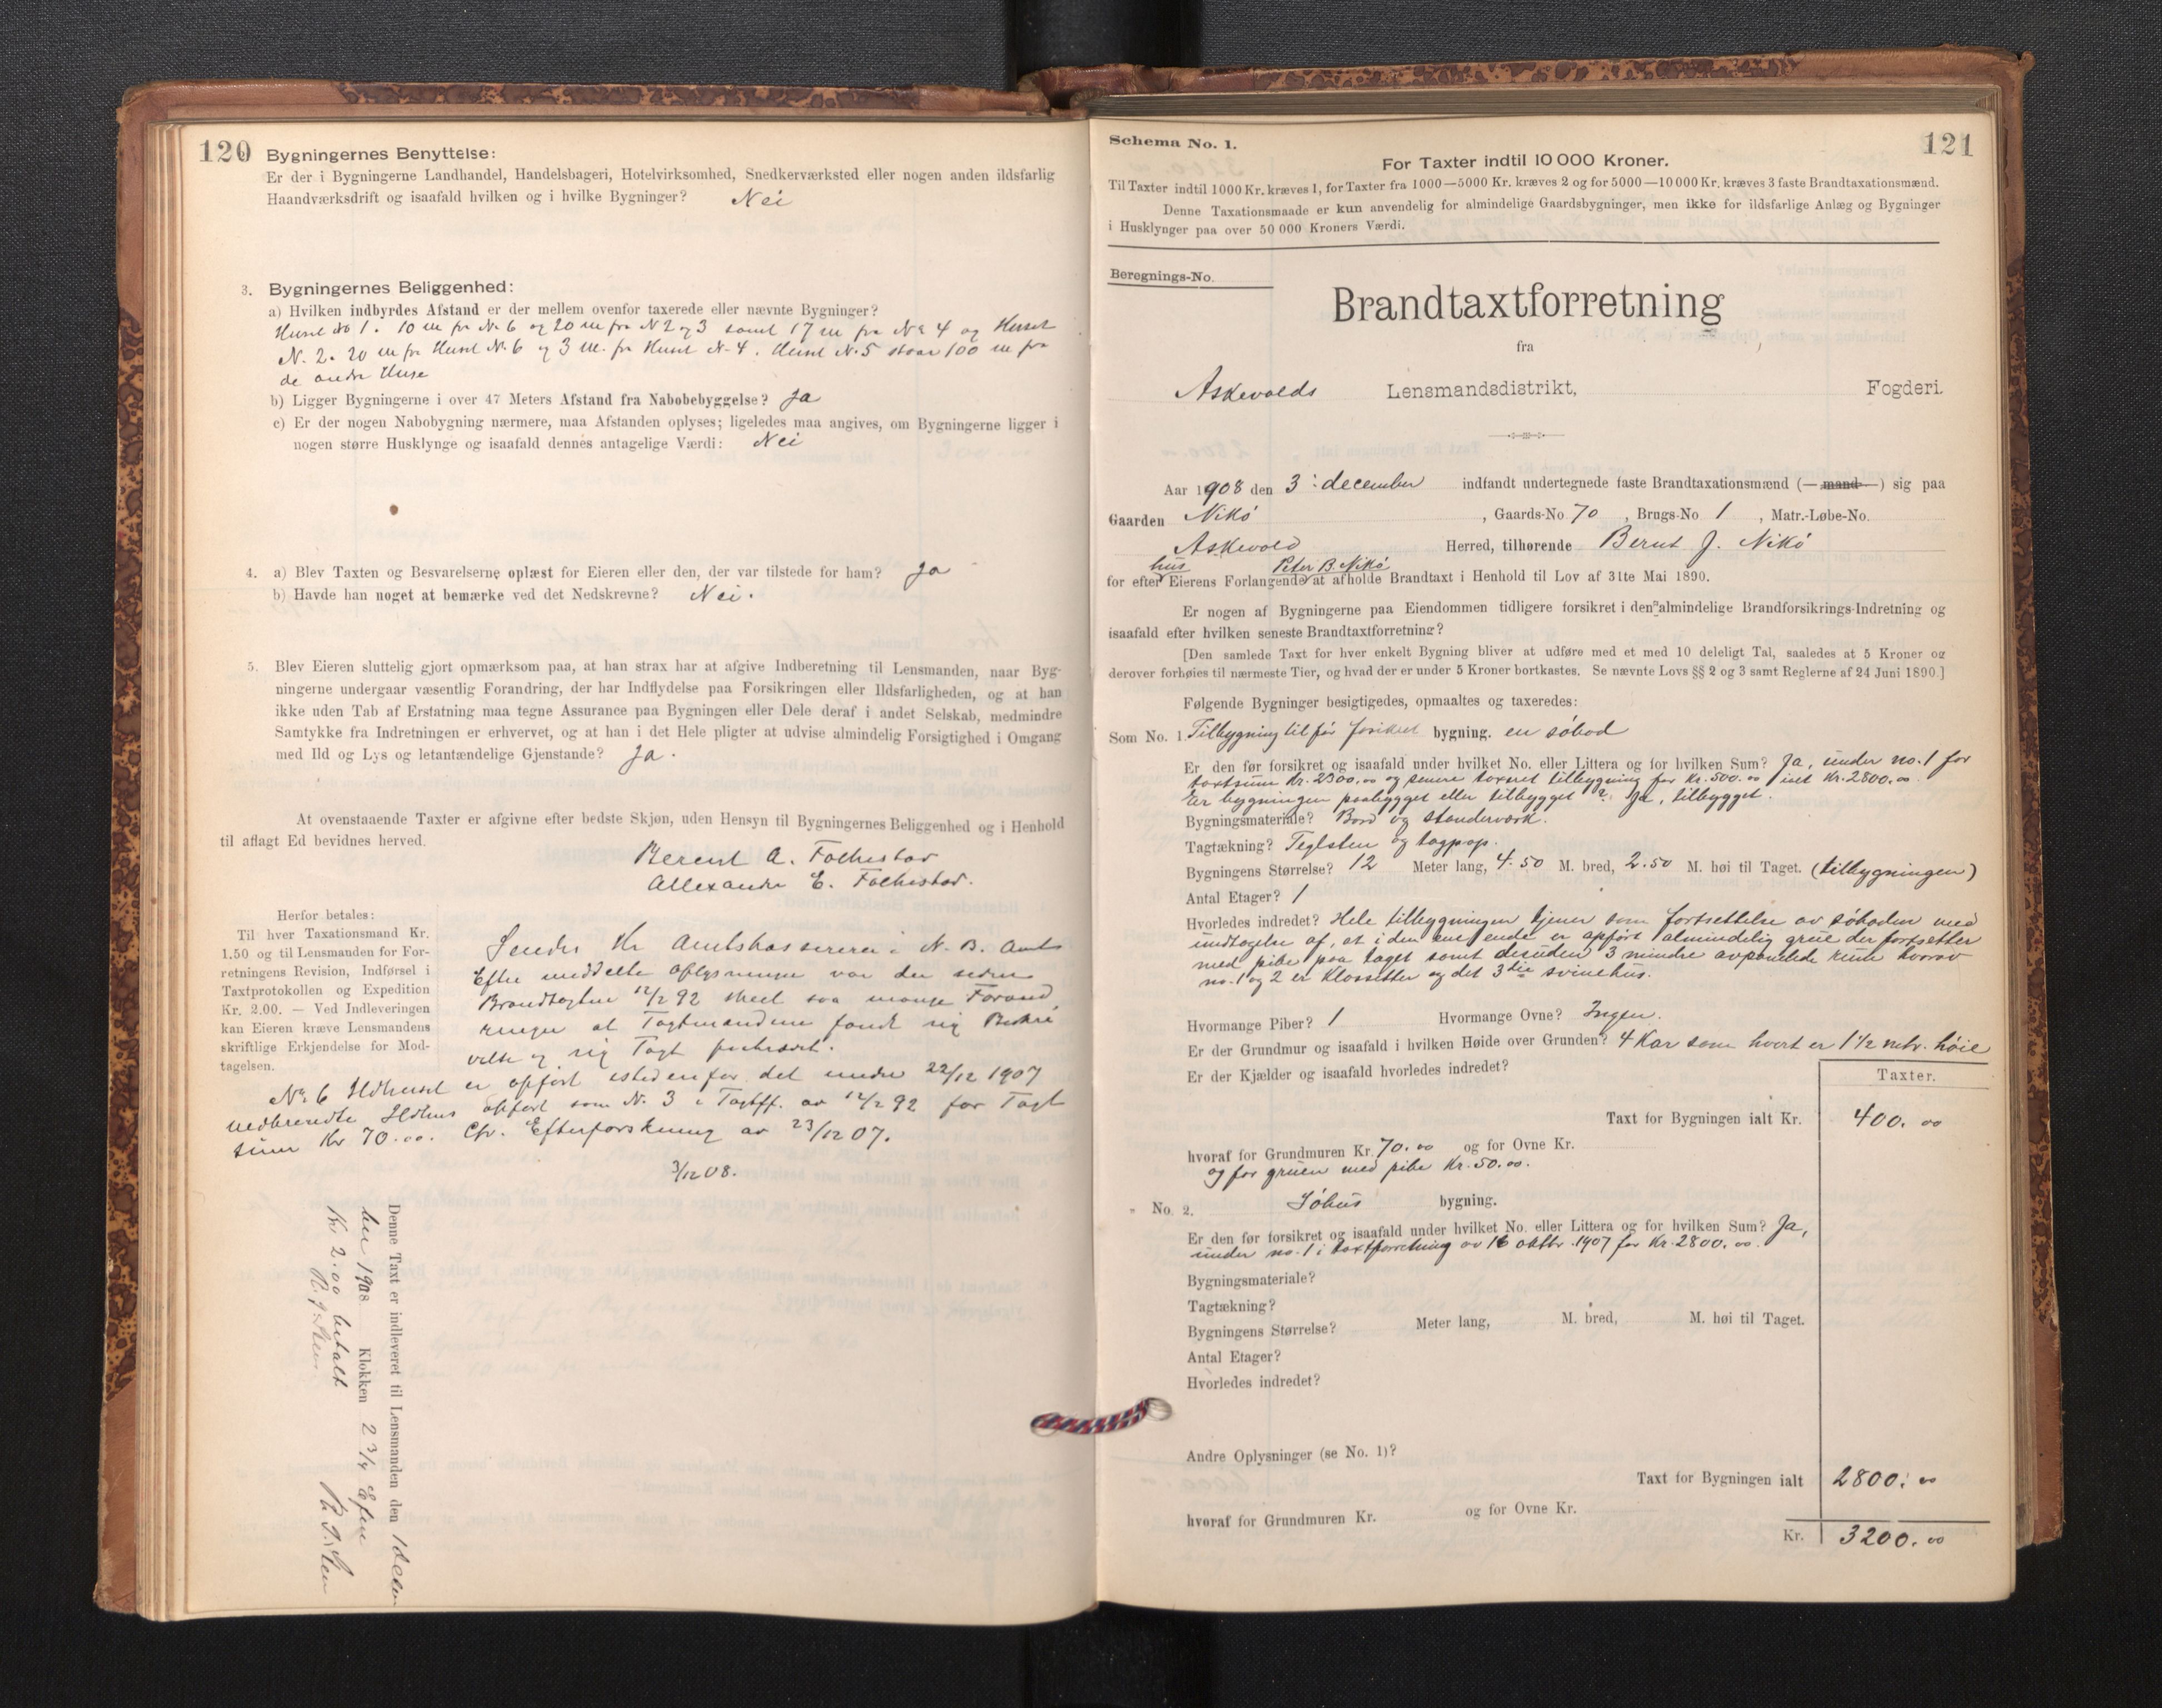 120
Bygningernes Benyttelse:
Er der i Bygningerne Landhandel, Handelsbageri, Hotelvirksomhed, Snedkerværksted eller nogen anden ildsfarlig
Haandværksdrift og isaafald hvilken og i hvilke Bygninger? Nei
3. Bygningernes Beliggenhed:
a) Hvilken indbyrdes Afstand er der mellem ovenfor taxerede eller nævnte Bygninger?
Huset No 1. 10 m fra No 6 og 20 m fra N 2 og 3 samt 17 m fra No 4 og Huset
N. 2. 20 m fra Huset N. 6 og 3 m. fra Huset N. 4. Huset N. 5 staar 100 m fra
de andre Huse
b) Ligger Bygningerne i over 47 Meters Afstand fra Nabobebyggelse? Ja
c) Er der nogen Nabobygning nærmere, maa Afstanden oplyses; ligeledes maa angives, om Bygningerne ligger i
nogen større Husklynge og isaafald dennes antagelige Værdi: Nei
4. a) Blev Taxten og Besvarelserne oplæst for Eieren eller den, der var tilstede for ham? Ja
b) Havde han noget at bemærke ved det Nedskrevne? Nei.
5. Blev Eieren sluttelig gjort opmærksom paa, at han strax har at afgive Indberetning til Lensmanden, naar Byg-
ningerne undergaar væsentlig Forandring, der har Indflydelse paa Forsikringen eller Ildsfarligheden, og at han
ikke uden Tab af Erstatning maa tegne Assurance paa Bygningen eller Dele deraf i andet Selskab, medmindre
Samtykke fra Indretningen er erhvervet, og at han i det Hele pligter at udvise almindelig Forsigtighed i Omgang
med Ild og Lys og letantændelige Gjenstande? Ja.
At ovenstaaende Taxter er afgivne efter bedste Skjøn, uden Hensyn til Bygningernes Beliggenhed og i Henhold
til aflagt Ed bevidnes herved.
Berent A. Folkestad
Allexander E. Folkestad.
Herfor betales:
Til hver Taxationsmand Kr.
1.50 og til Lensmanden for For-
retningens Revision, Indførsel i
Taxtprotokollen og Expedition
Kr. 2.00. — Ved Indleveringen
kan Eieren kræve Lensmandens
skriftlige Erkjendelse for Mod-
tagelsen.
Sendes Hr Amtskassereren i N. B. Amt
Efter meddelte Oplysninger var der siden
Brandtagten 12/2 92 skeet saa mange Forand
ringer at Tagtmændene fandt ny Beskri
velse og ny Tagt
No 6 Ildhuset er opført istedenfor det under 22/12 1907
nedbrændte Ildhus opført som N. 3 i Tagtff. av 12/2 92 for Tagt
sum Kr 70.00. Cfr. Efterforskning av 23/12 07.
3/12 08.
Denne Taxt er indleveret til Lensmanden den 1 decem
ber 1908 Klokken 2 3/4 Efm
Kr 2.00 betalt
121
Schema No. 1.
For Taxter indtil 10 000 Kroner.
Til Taxter indtil 1000 Kr. kræves 1, for Taxter fra 1000—5000 Kr. kræves 2 og for 5000—10 000 Kr. kræves 3 faste Brandtaxationsmænd.
Denne Taxationsmaade er kun anvendelig for almindelige Gaardsbygninger, men ikke for ildsfarlige Anlæg og Bygninger
i Husklynger paa over 50 000 Kroners Værdi.
Beregnings-No.
Brandtaxtforretning
fra
Askevolds Lensmandsdistrikt, Fogderi.
Aar 1908 den 3: december indfandt undertegnede faste Brandtaxationsmænd (—mand—) sig paa
Gaarden Nikø, Gaards-No 70, Brugs-No 1, Matr.-Løbe-No.
Askevold Herred, tilhørende Bernt J. Nikø
hus Peter B. Nikø
for efter Eierens Forlangende at afholde Brandtaxt i Henhold til Lov af 31te Mai 1890.
Er nogen af Bygningerne paa Eiendommen tidligere forsikret i den almindelige Brandforsikrings-Indretning og
isaafald efter hvilken seneste Brandtaxtforretning?
[Den samlede Taxt for hver enkelt Bygning bliver at udføre med et med 10 deleligt Tal, saaledes at 5 Kroner og
derover forhøies til nærmeste Tier, og hvad der er under 5 Kroner bortkastes. Se nævnte Lovs §§ 2 og 3 samt Reglerne af 24 Juni 1890.]
Følgende Bygninger besigtigedes, opmaaltes og taxeredes:
Som No. 1. Tilbygning til før forsikret bygning. en søbod
Er den før forsikret og isaafald under hvilket No. eller Littera og for hvilken Sum? Ja, under no. 1 for
taxtsum Kr. 2300.00 og senere taxeret tilbygning for Kr. 500.00 ialt Kr. 2800.00
Er bygningen paabygget eller tilbygget? Ja, tilbygget.
Bygningsmateriale? Bord og standerværk.
Tagtækning? Teglsten og tagpap.
Bygningens Størrelse? 12 Meter lang, 4.50 M. bred, 2.50 M. høi til Taget. (tilbygningen)
Antal Etager? 1
Hvorledes indredet? Hele tilbygningen tjener som fortsettelse av søboden med
undtagelse af, at i den ene ende er opført almindelig grue der fortsetter
med pibe paa taget samt desuden 3 mindre avpanelede rum hvorav
no. 1 og 2 er Klossetter og det 3die svinehus.
Hvormange Piber? 1 Hvormange Ovne? Ingen.
Er der Grundmur og isaafald i hvilken Høide over Grunden? 4 Kar som hvert er 1 1/2 metr. høie
Er der Kjælder og isaafald hvorledes indredet?
Taxter.
Taxt for Bygningen ialt Kr. 400.00
hvoraf for Grundmuren Kr. 70.00 og for Ovne Kr.
og for gruen med pibe Kr. 50.00.
" No. 2. Søhus bygning.
Er den før forsikret og isaafald under hvilket No. eller Littera og for hvilken Sum? Ja,
under no. 1 i taxtforretning av 16 oktbr. 1907 for Kr. 2800.00.
Bygningsmateriale?
Tagtækning?
Bygningens Størrelse? Meter lang, M. bred, M. høi til Taget.
Antal Etager?
Hvorledes indredet?
Andre Oplysninger (se No. 1)?
Taxt for Bygningen ialt 2800.00
hvoraf for Grundmuren Kr. og for Ovne Kr.
Kr. 3200.00